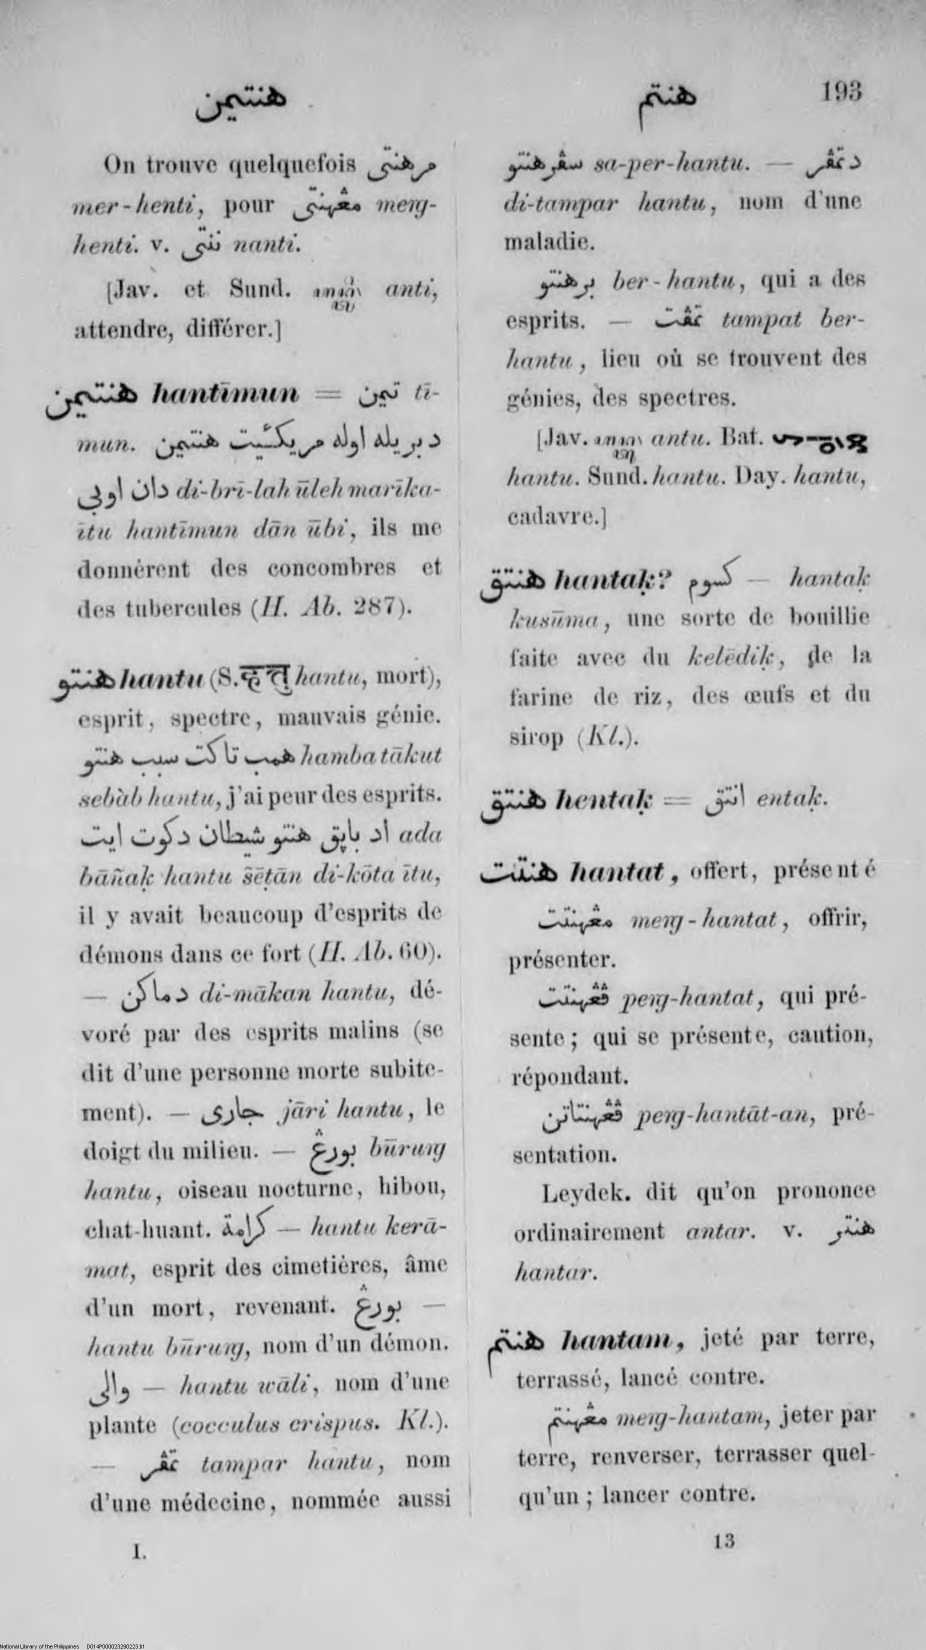 هنتيمن
هنتم 193
On trouve quelquefois مرهنتي
mer-henti, pour مڠهنتي meng-
henti. v. ننتي nanti.
[Jav. et Sund. anti,
attendre, différer.]
هنتيمن hantīmun = تيمن tī-
mun. دبريله اوله مريكئيت هنتيمن
دان اوبي di-brī-lah ūleh marīka-
ītu hantīmun dān ūbi, ils me
donnèrent des concombres et
des tubercules (H. Ab. 287).
هنتو hantu (S. हन्तु hantu, mort),
esprit, spectre, mauvais génie.
همب تاكت سبب هنتو hamba tākut
sebàb hantu, j'ai peur des esprits.
اد باڽق هنتو شيطان دكوت ايت ada
bāñaḳ hantu šēṭān di-kōta ītu,
il y avait beaucoup d'esprits de
démons dans ce fort (H. Ab. 60).
— دماكن di-mākan hantu, dé-
voré par des esprits malins (se
dit d'une personne morte subite-
ment). — جاري jāri hantu, le
doigt du milieu. — بورڠ būrung
hantu, oiseau nocturne, hibou,
chat-huant. كرامة — hantu kerā-
mat, esprit des cimetières, âme
d'un mort, revenant. بورڠ —
hantu būrung, nom d'un démon.
والي — hantu wāli, nom d'une
plante (cocculus crispus. Kl.).
— تمڤر tampar hantu, nom
d'une médecine, nommée aussi
I.
سڤرهنتو sa-per-hantu. — دتمڤر
di-tampar hantu, nom d'une
maladie.
برهنتو ber-hantu, qui a des
esprits. — تمڤت tampat ber-
hantu, lieu où se trouvent des
génies, des spectres.
[Jav. antu. Bat.
hantu. Sund. hantu. Day. hantu,
cadavre.]
هنتق hantaḳ? كسوم — hantaḳ
kusūma, une sorte de bouillie
faite avec du kelēdiḳ, de la
farine de riz, des œufs et du
sirop (Kl.).
هنتق hentaḳ = انتق entaḳ.
هنتت hantat, offert, présenté
مڠهنتت meng-hantat, offrir,
présenter.
ڤڠهنتت peng-hantat, qui pré-
sente; qui se présente, caution,
répondant.
ڤڠهنتاتن peng-hantāt-an, pré-
sentation.
Leydek. dit qu'on prononce
ordinairement antar. v. هنتر
hantar.
هنتم hantam, jeté par terre,
terrassé, lancé contre.
مڠهنتم meng-hantam, jeter par
terre, renverser, terrasser quel-
qu'un; lancer contre.
13
National Library of the Philippines